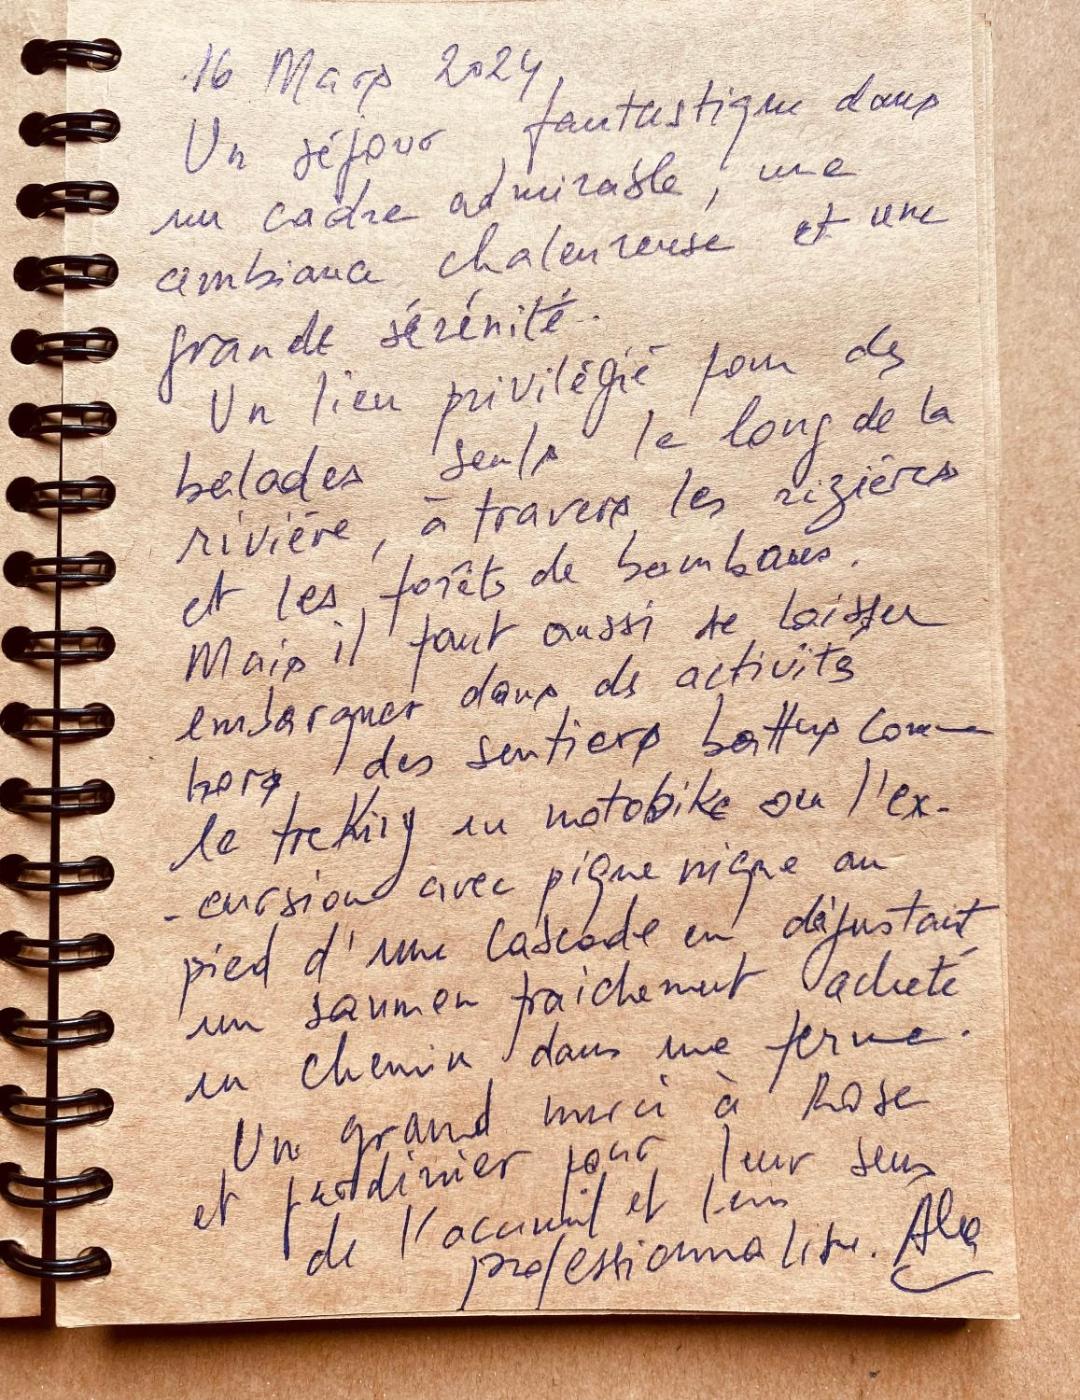 16 Mars 2024,
Un séjour fantastique dans
un cadre admirable, une
ambiance chaleureuse et une
grande sérénité.
Un lieu privilégié pour des
balades seuls le long de la
rivière, à travers les rizières
et les forêts de bambous.
Mais il faut aussi se laisser
embarquer dans des activités
hors des sentiers battus comme
le treking en motobike ou l'ex-
-cursion avec pique nique au
pied d'une cascade en dégustant
un saumon fraichement acheté
en chemin dans une ferme.
Un grand merci à Rose
et jardinier pour leur sens
de l'accueil et leur
professionnalisme.